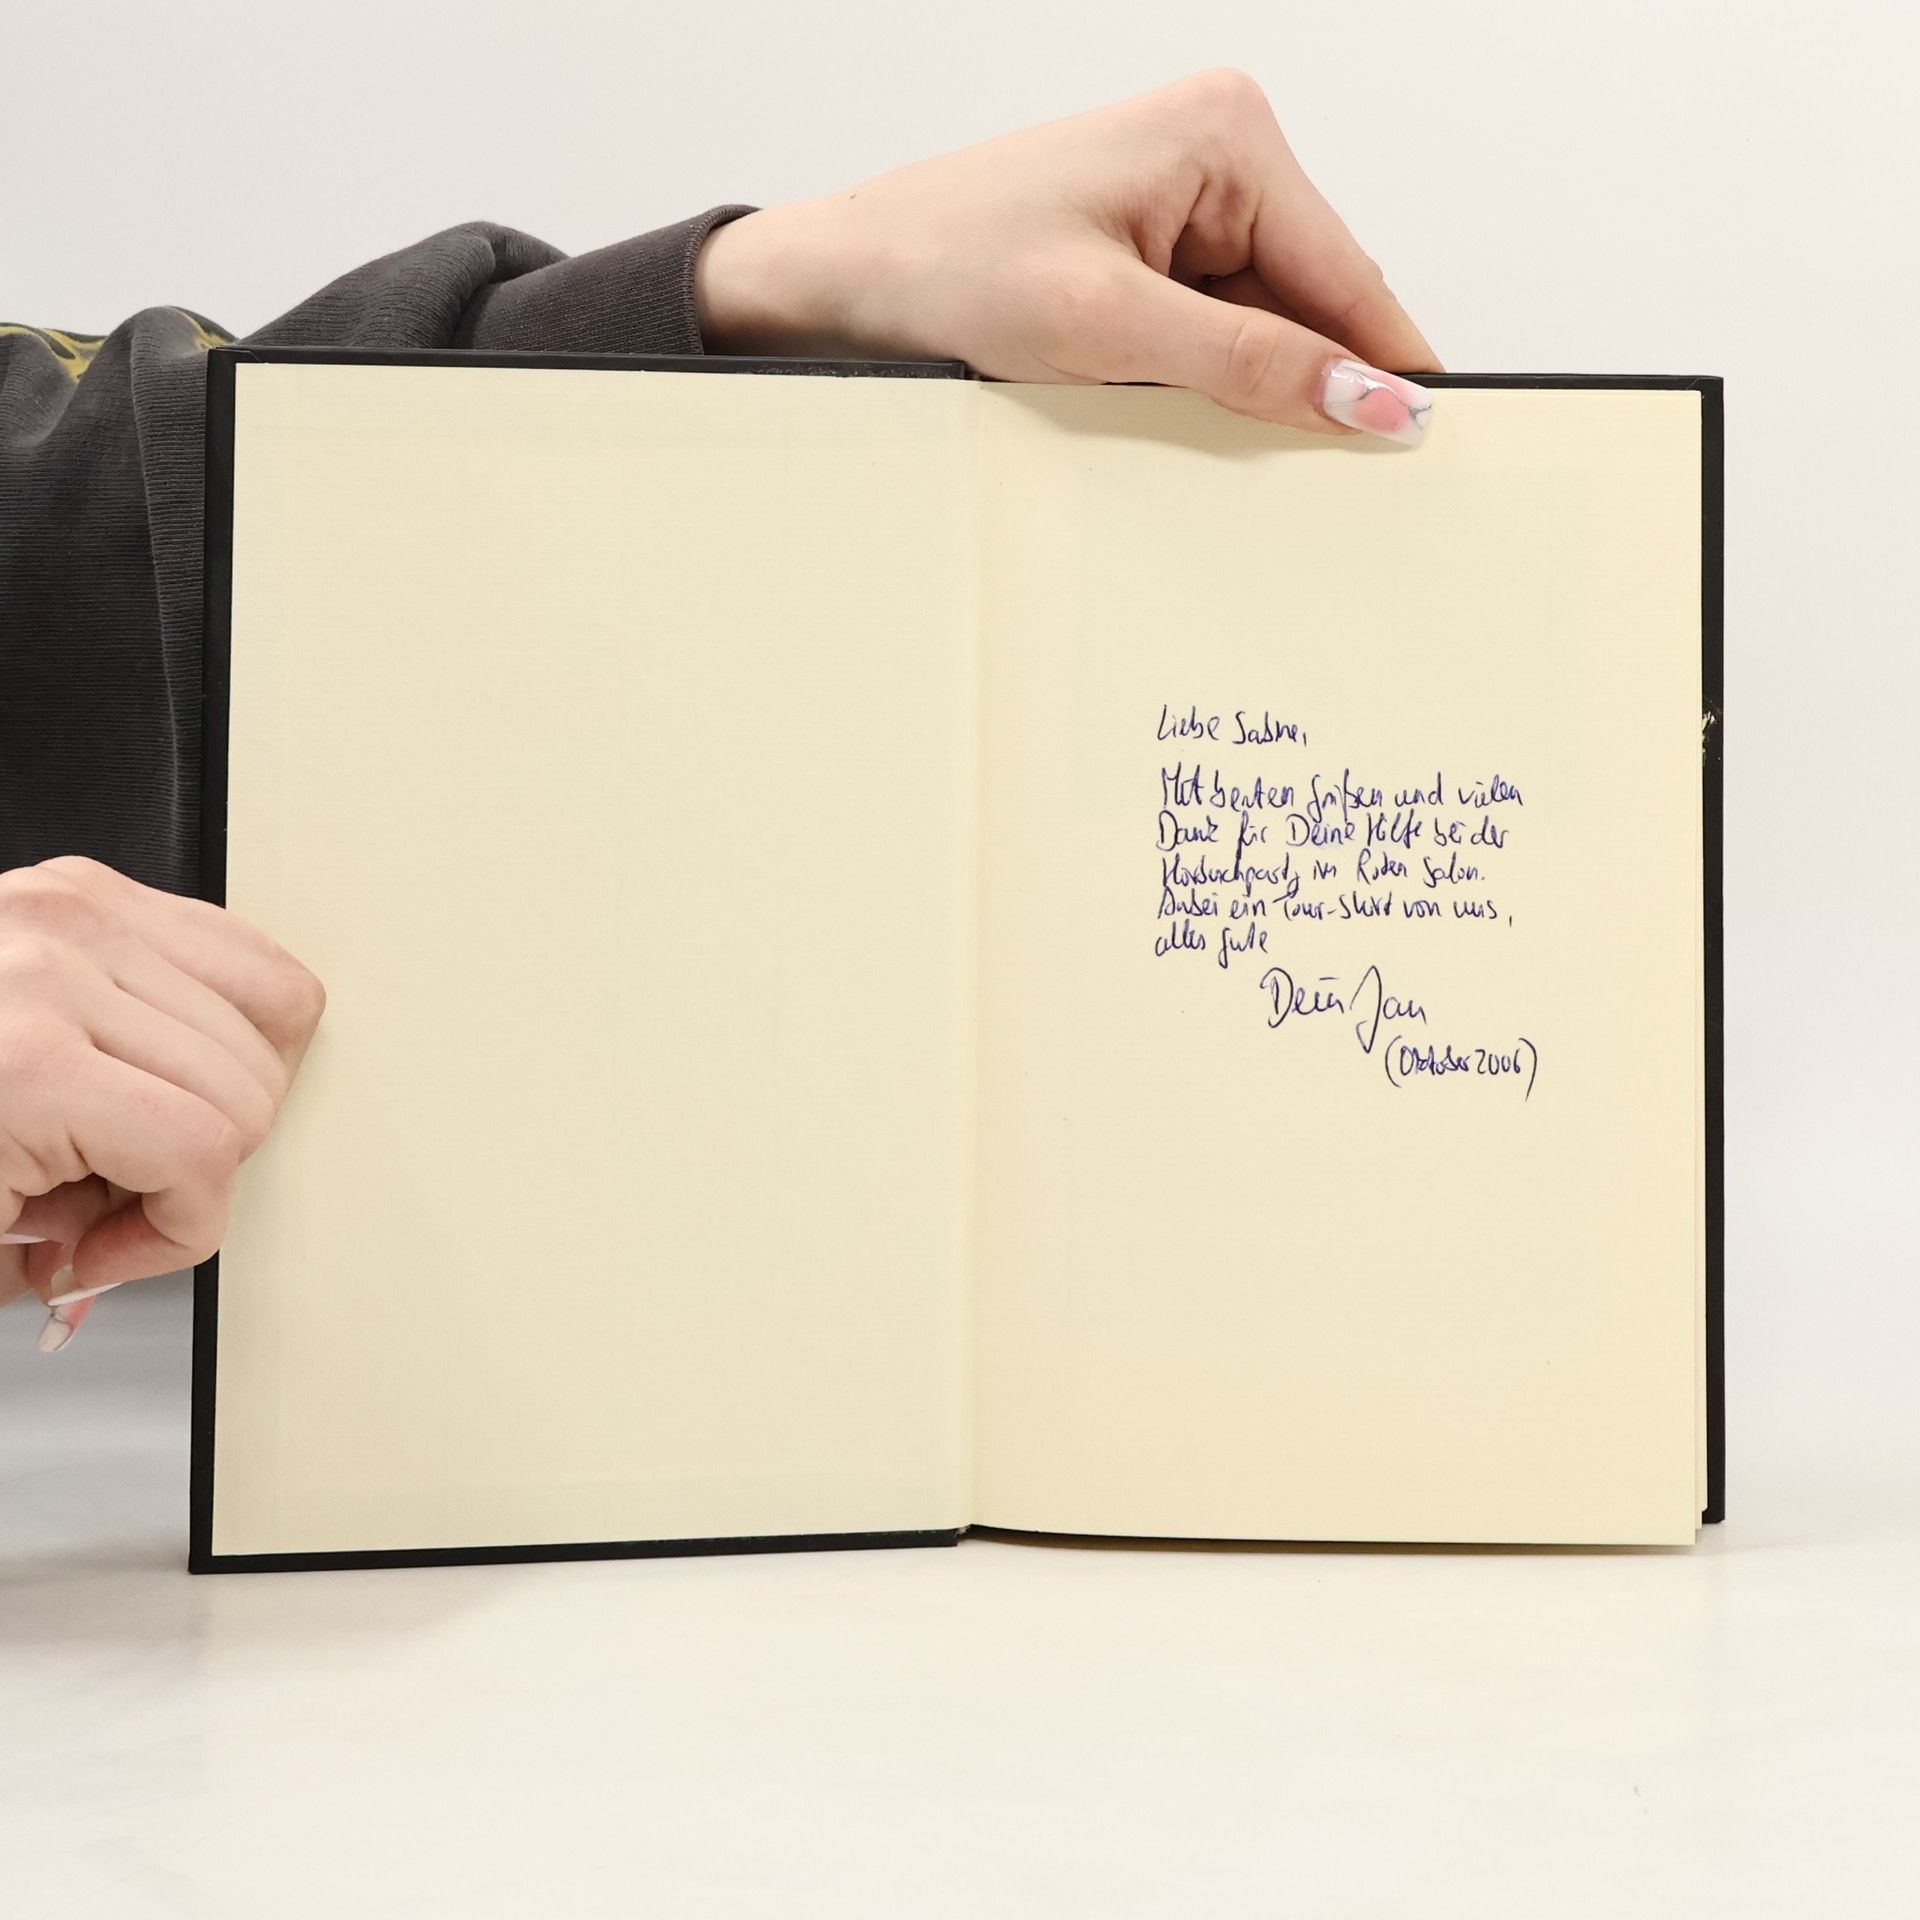 Liebe Sabine,
Mit besten Grüßen und vielen
Dank für Deine Hilfe bei der
Hörbuchparty im Roten Salon.
Anbei ein Tour-Shirt von uns,
alles gute
Dein Jan
(Oktober 2006)